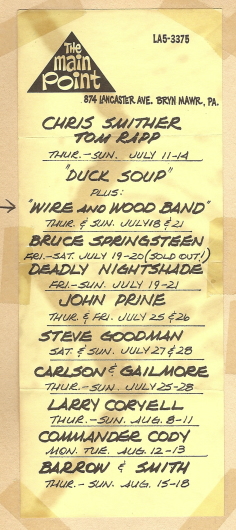 The
main
Point
LA5-3375
874 LANCASTER AVE. BRYN MAWR, PA.
CHRIS SMITHER
TOM RAPP
THUR.-SUN. JULY 11-14
"DUCK SOUP"
PLUS:
"WIRE AND WOOD BAND"
THUR. & SUN. JULY 18 & 21
BRUCE SPRINGSTEEN
FRI.-SAT. JULY 19-20 (SOLD OUT!)
DEADLY NIGHTSHADE
FRI.-SUN. JULY 19-21
JOHN PRINE
THUR. & FRI. JULY 25 & 26
STEVE GOODMAN
SAT. & SUN. JULY 27 & 28
CARLSON & GAILMORE
THUR.-SUN. JULY 25-28
LARRY CORYELL
THUR.-SUN. AUG. 8-11
COMMANDER CODY
MON. TUE. AUG. 12-13
BARROW & SMITH
THUR.-SUN. AUG. 15-18